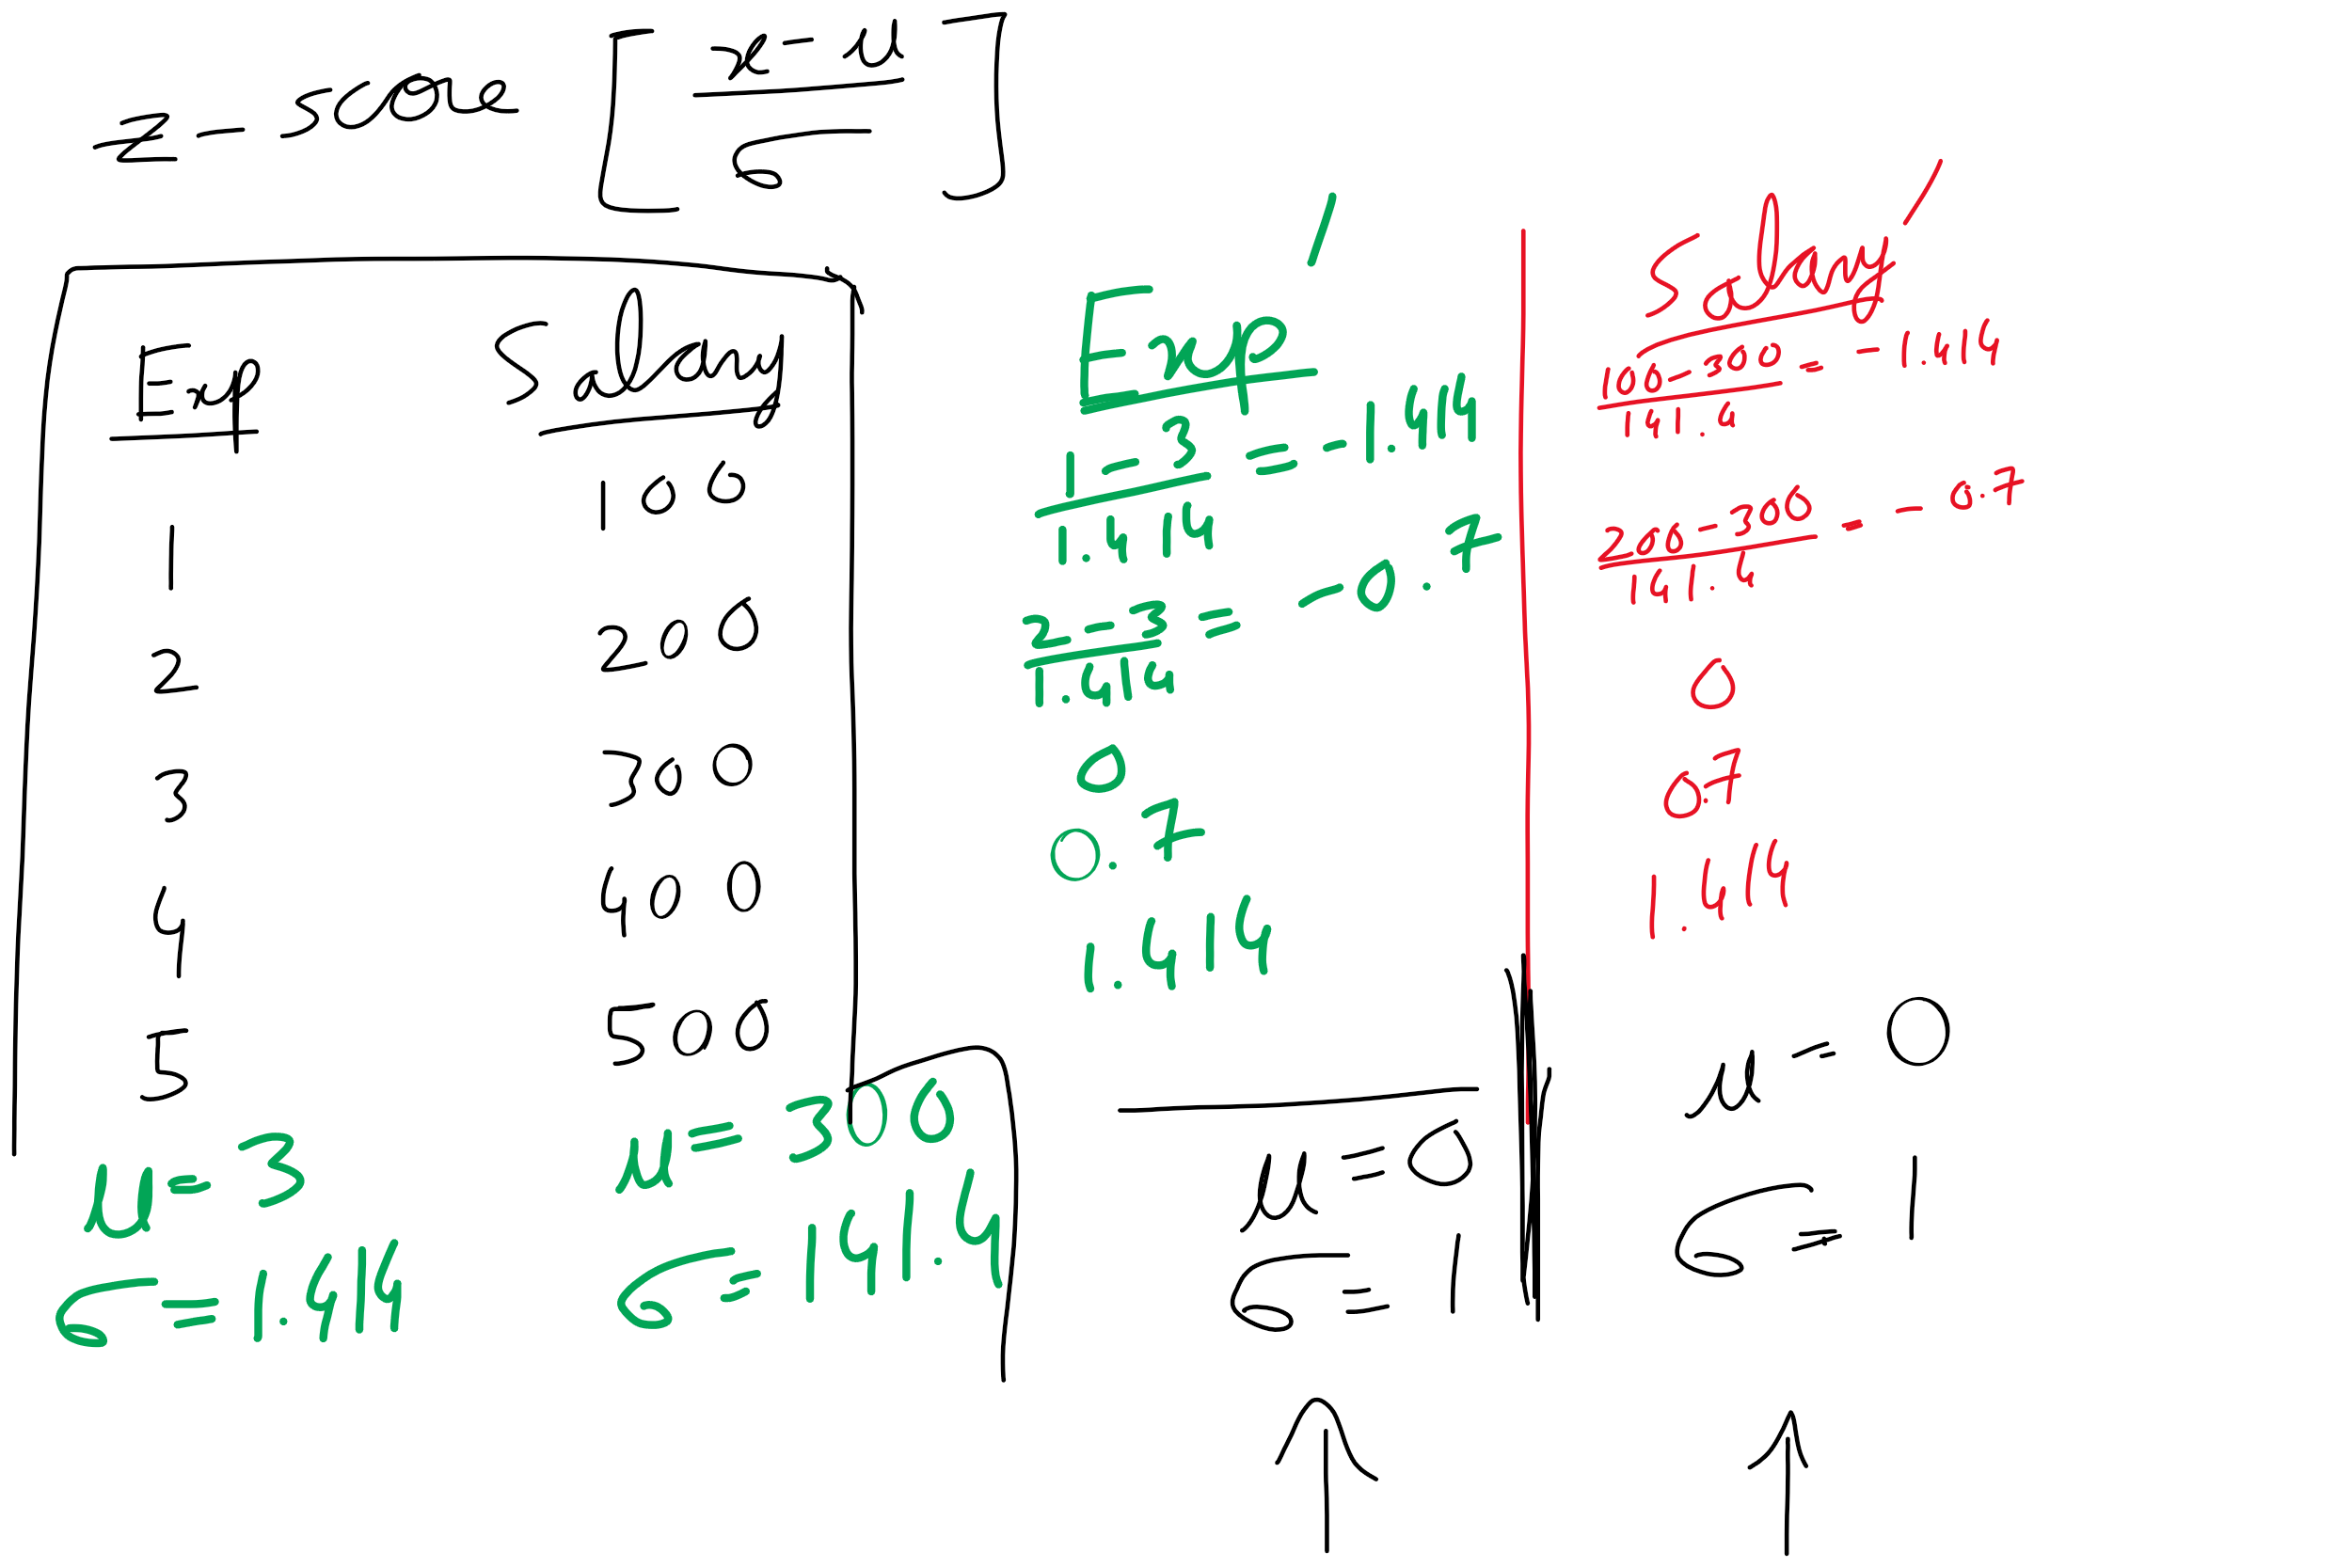 z - score [ x - μ / σ ]
Exp Salary
1 100
2 200
3 300
4 400
5 500
μ = 3 μ = 300
σ = 1.414 σ = 141.4
Exp'
1 - 3 / 1.414 = -1.414
2 - 3 / 1.414 = -0.7
0
0.7
1.414
μ = 0
σ = 1
Salary'
100 - 300 / 141.4 = -1.414
200 - 300 / 141.4 = -0.7
0
0.7
1.414
μ = 0
σ = 1